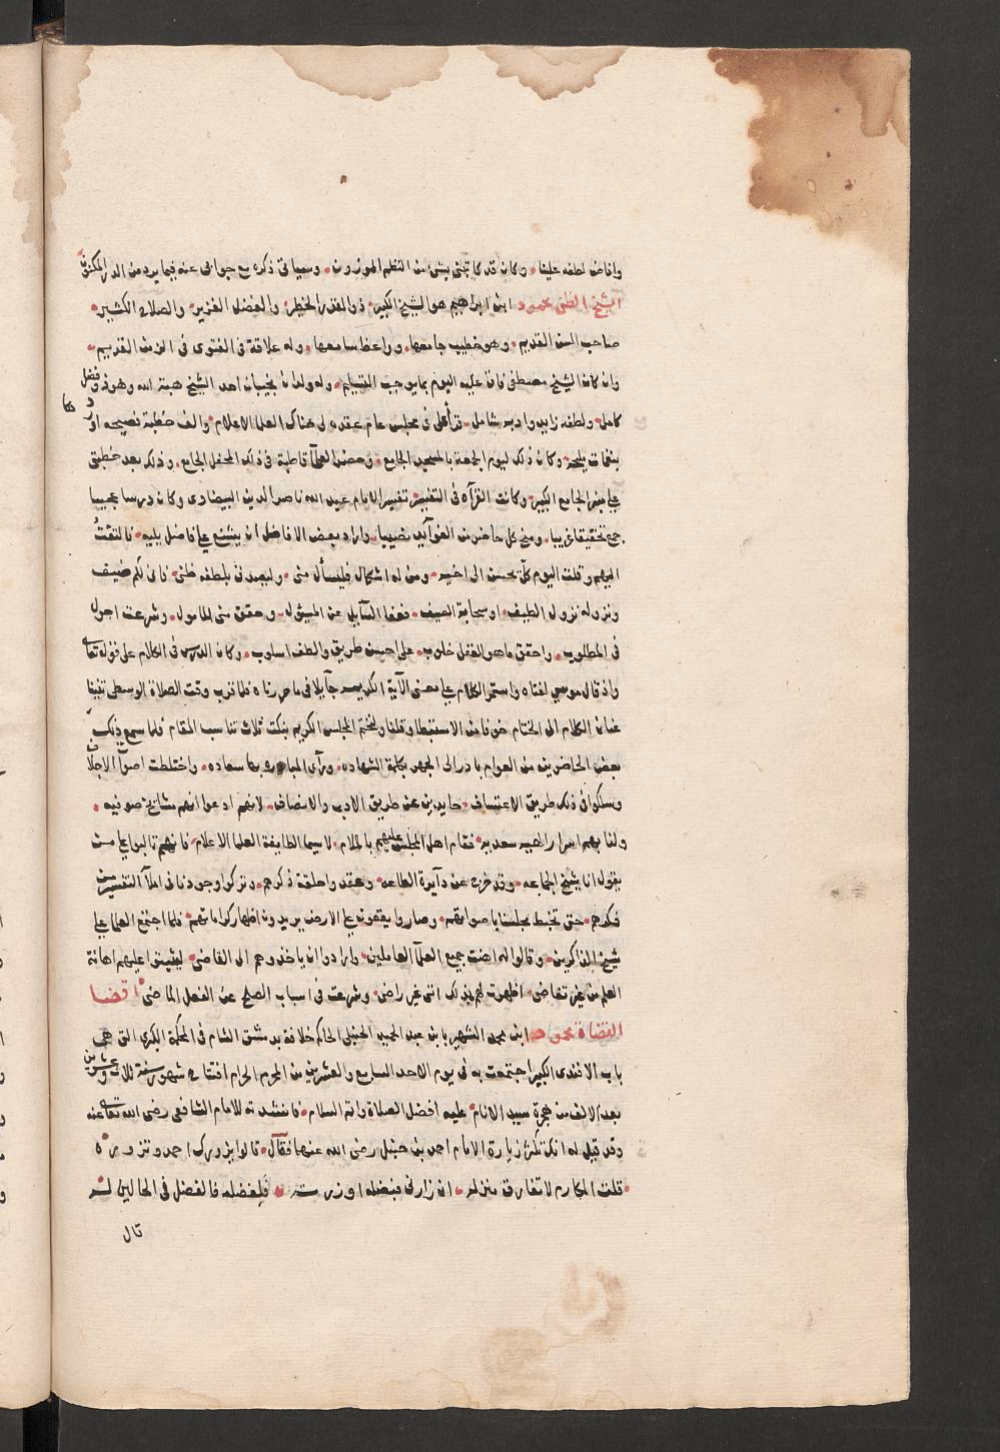 وافاض لطفه علينا وكان قد كاتبنى بشئ من النظم الموزون وسياتى ذكره مع جوابى عنه فيما يرد من الدر المكنون
الشيخ اللطفى محمود ابن ابراهيم هو الشيخ الكبير ذو القدر الخطير والفضل الغزير والصلاح الكثير
صاحب السن القديم وهو خطيب جامعها وواعظ سامعها وله علاقة فى الفتوى فى الزمن القديم
وان كان الشيخ مصطفى فاق عليه اليوم بما يوجب التسليم وله ولدان نجيبان احد الشيخ هبة الله وهو ذو فضل
كامل ولطفه زايد وادبه شامل قرأ على فى مجلس عام عقده لى هناك العلما الاعلام والف خطبة فصيحه اوردها
بنغمات مليحة وكان ذلك ليوم الجمعة بالمسجد الجامع وحضر العلمآ قاطبة فى ذلك المحفل الجامع وذلك بعد خطبتى
على منبر الجامع الكبير وكانت القرآه فى التفسير تفسير الامام عبد الله ناصر الدين البيضاوى وكان درسا عجيبا
جمع تحقيقا غريبا ومنح كل حاضر من الفوآيد نصيبا واراد بعض الافاضل ان يشنع على فاضل يليه فالتفتُ
اليهم وقلت اليوم كلٌّ يحسن الى اخيه ومن له اشكال فليسأل منى وليصدق بلطفه ظنى فانى لكم ضيف
ونزوله نزول الطيف او سحابة الصيف فعفا السآيل عن المسئول وحقق منى المامول وشرعت اجول
فى المطلوب واحقق ما هو للعقل خلوب على احسن طريق والطف اسلوب وكان الدرس فى الكلام على قوله تعالى
واذ قال موسى لفتاه واستمر الكلام على معنى الآية الكريمه جآيلا فى ما حررناه فلما قرب وقت الصلاة الوسطى ثنينا
عنان الكلام الى الختام خوفا من الاستنبطا وقلنا ولنختم المجلس الكريم بنكت ثلاث تناسب المقام فلما سمع ذلك
بعض الحاضرين من العوام بادر الى الجهر بكلمة الشهاده ورآى المبادره بها سعاده واختلطت اصوآ الاجلّا
وسلكوا فى ذلك طريق الاعتساف حايدين عن طريق الادب والانصاف لانهم ادعوا انهم مشايخ صوفيه
ولنا بهم اسرار الهيه سعديه فقام اهل المجلس عليهم بالملام لاسيما الطايفة العلما الاعلام فانهم تالبوا على من
يقول انا شيخ الجماعه وقد خرج عن دآيرة الطاعه وعقد واحلقة ذكرهم وتركوا وجودنا فى املآ التفسير من
فكرهم حتى تخبط مجلسنا باصواتهم وصاروا يقعون على الارض يريدون اظهار كراماتهم فلما اجتمع العلما على
شيخ الذاكرين وقالوا له اهنت جميع العلمآ العاملين وارادوا ان ياخذوهم الى القاضى ليثبتوا عليهم اهانة
العلم من غير تغاضى اظهرت لهم بذلك اننى غير راضى وشرعت فى اسباب الصلح عن الفعل الماضى اقضا
القضاة محمود ابن محمد الشهير بابن عبد الحميد الحنبلى الحاكم خلافة بدمشق الشام فى المحكمة الكبرى التى هى
باب الافندى الكبير اجتمعت به فى يوم الاحد السابع والعشرين من المحرم الحرام افتتاح شهور سنة ثلاث وعشرين
بعد الالف من هجرة سيد الانام عليه افضل الصلاة واتم السلام فانشدته للامام الشافعى رضى الله تعالى عنه
وقد قيل له انك تكثر زيارة الامام احمد بن حنبل رضى الله عنهما فقال قالوا يزورك احمد وتزوره
قلت المكارم لا تفارق منزله ان زارنى فبفضله او زرته فلفضله فالفضل فى الحالين له
قال